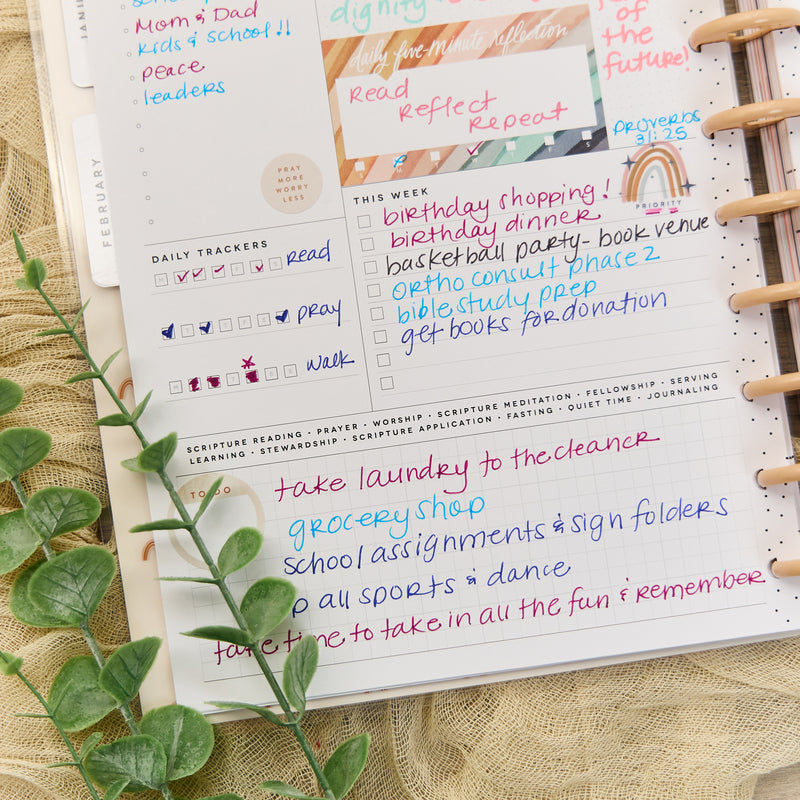 Mom & Dad
kids & school!!
peace
leaders
PRAY
MORE
WORRY
LESS
JANU
FEBRUARY
dignity
of
the
future!
daily five-minute reflection
Read
Reflect
Repeat
Proverbs
31:25
PRIORITY
DAILY TRACKERS
Read
pray
walk
THIS WEEK
birthday shopping!
birthday dinner
basketball party- book venue
ortho consult phase 2
bible study prep
get books for donation
SCRIPTURE READING • PRAYER • WORSHIP • SCRIPTURE MEDITATION • FELLOWSHIP • SERVING
LEARNING • STEWARDSHIP • SCRIPTURE APPLICATION • FASTING • QUIET TIME • JOURNALING
TO DO
take laundry to the cleaner
grocery shop
school assignments & sign folders
all sports & dance
take time to take in all the fun & remember